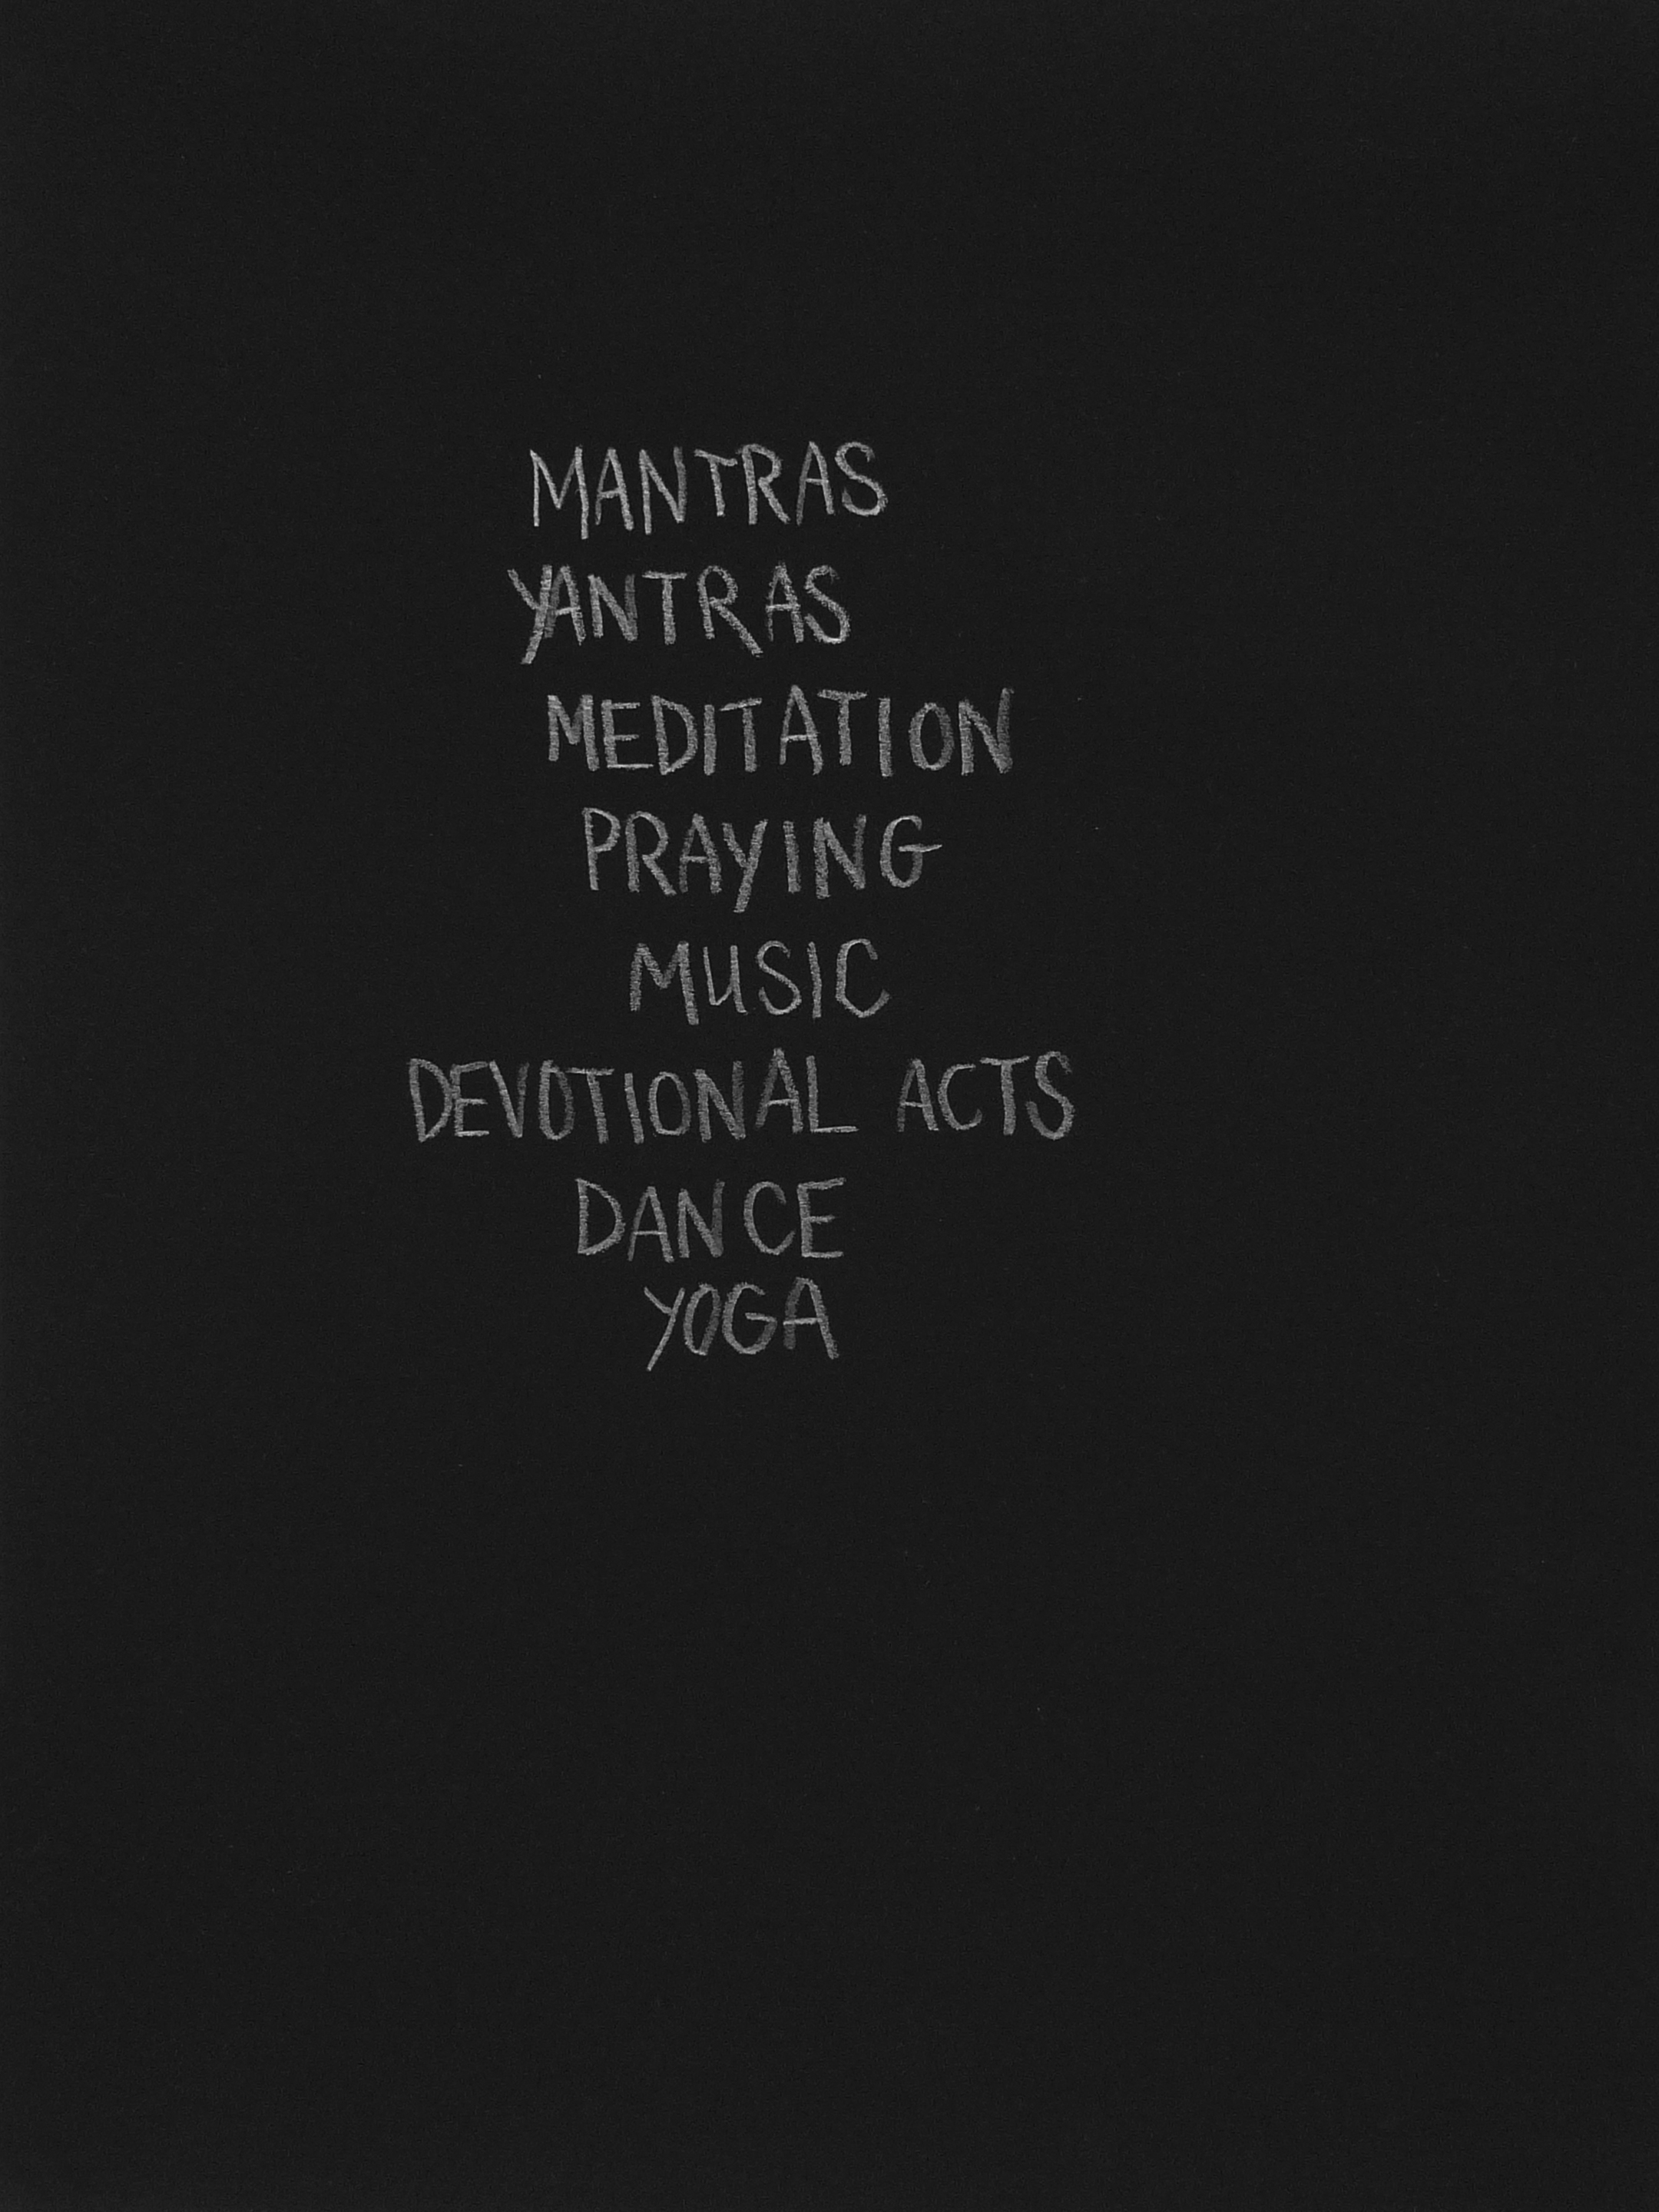 MANTRAS
YANTRAS
MEDITATION
PRAYING
MUSIC
DEVOTIONAL ACTS
DANCE
YOGA